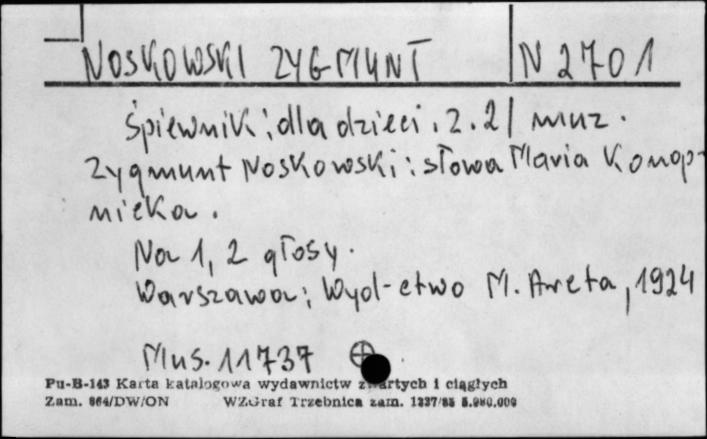 NOSKOWSKI ZYGMUNT N 2701
Śpiewnik; dla dzieci. Z. 2 / muz.
Zygmunt Noskowski; słowa Maria Konop-
nicka.
Na 1, 2 głosy.
Warszawa; Wyd-ctwo M. Arcta, 1924
Mus. 11737
Pu-B-143 Karta katalogowa wydawnictw zwartych i ciągłych
Zam. 864/DW/ON WZGraf Trzebnica zam. 1337/85